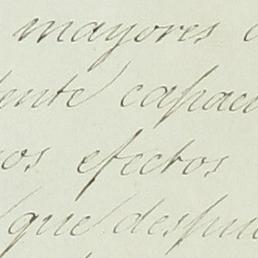 mayores
ente capac
os efectos
que despu